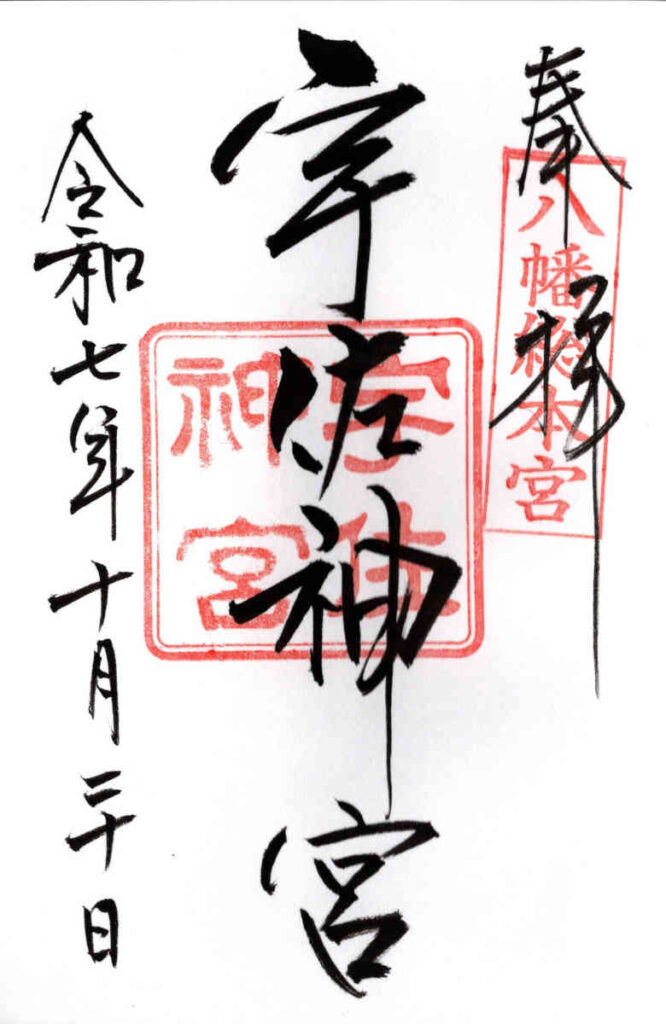 奉拝
八幡総本宮
宇佐神宮
宇佐
神宮
令和七年十月二十日